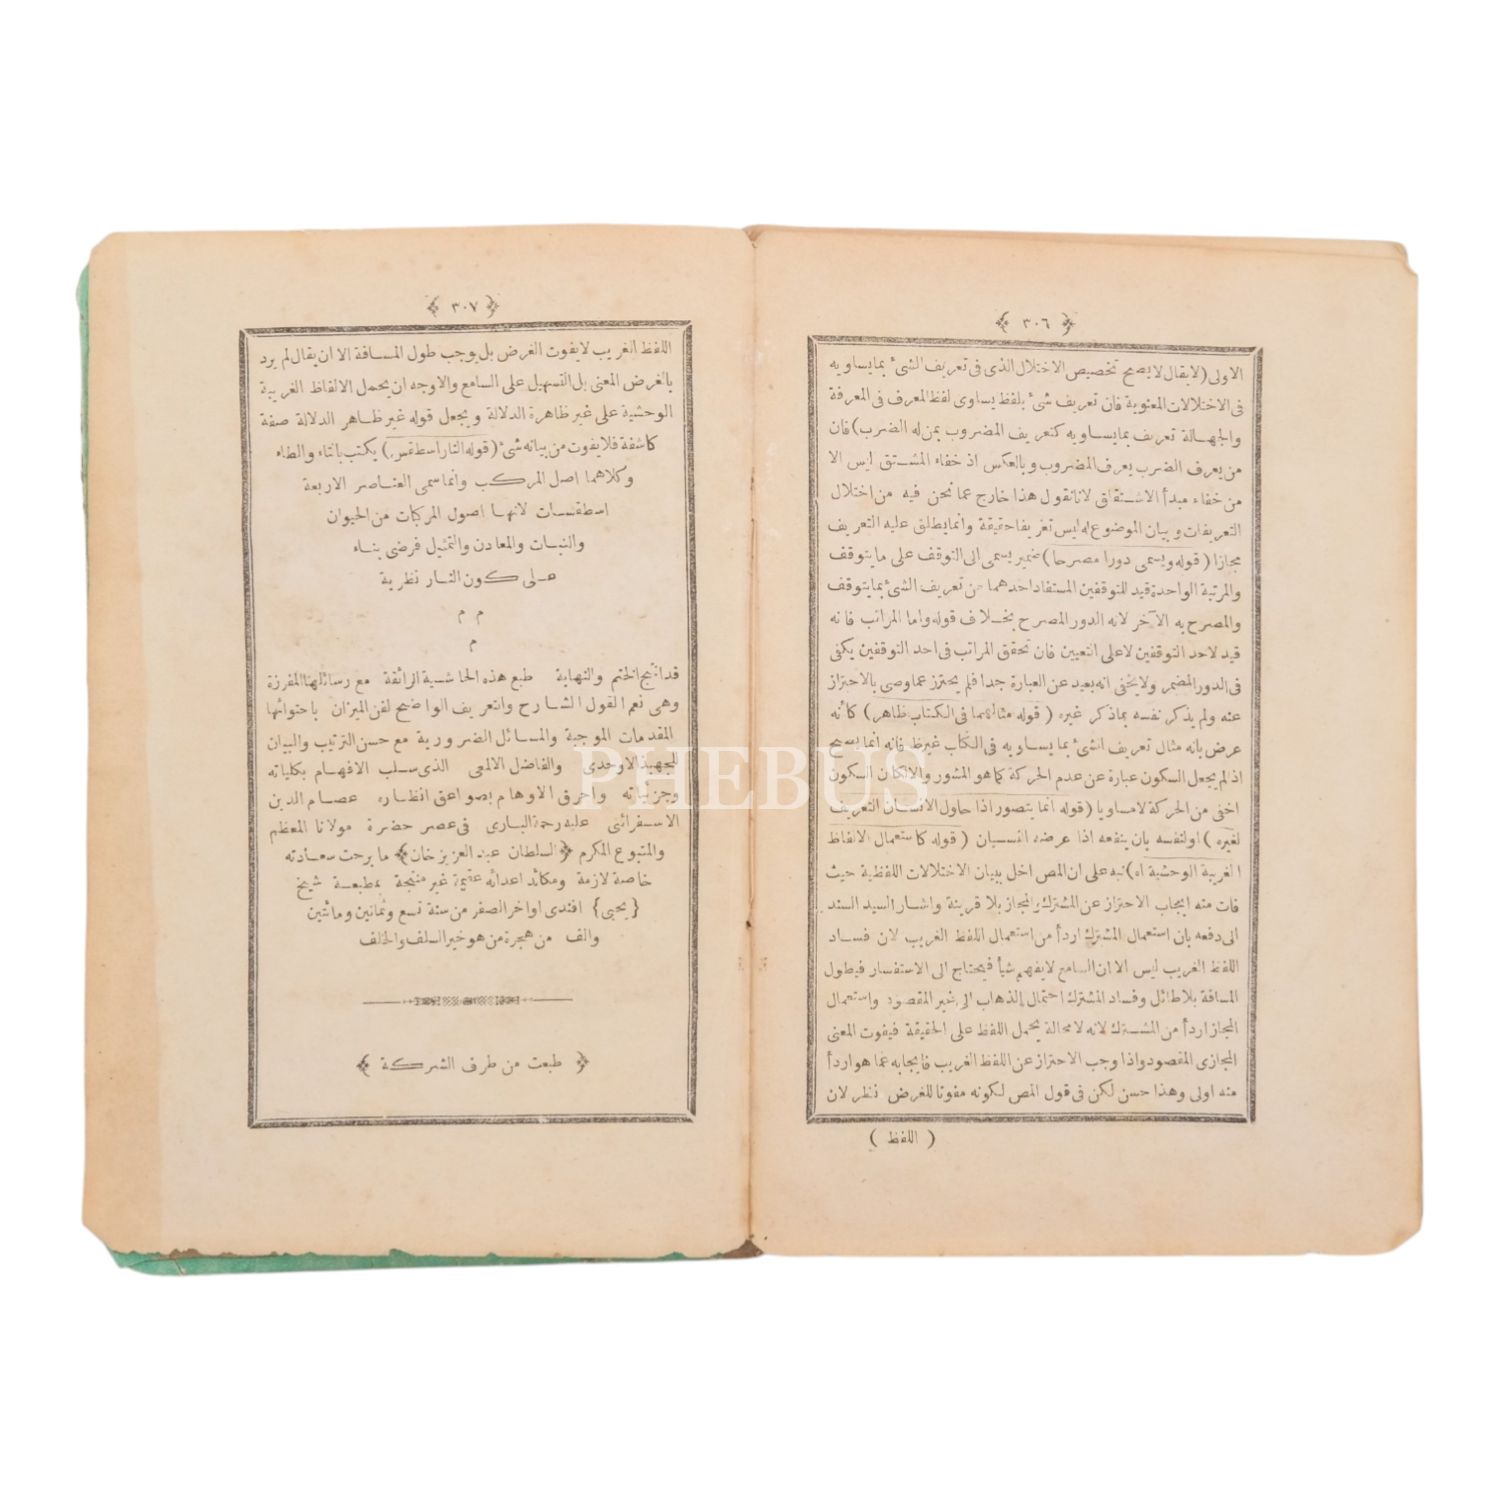 ﴿ ٣٠٦ ﴾
الاولى (لا يقال لا يصح تخصيص الاختلال الذى فى تعريف الشئ بما يساويه
فى الاختلالات المعنوية فان تعريف شئ بلفظ يساوى لفظ المعرف فى المعرفة
والجهالة تعريف بما يساويه كتعريف المضروب بمن له الضرب) فان
من يعرف الضرب يعرف المضروب وبالعكس اذ خفاء المشتق ليس الا
من خفاء مبدأ الاشتقاق لانا نقول هذا خارج عما نحن فيه من اختلال
التعريفات وبيان الموضوع له ليس تعريفا حقيقة وانما يطلق عليه التعريف
مجازا (قوله ويسمى دورا مصرحا) ضمير يسمى الى التوقف على ما يتوقف
والمرتبة الواحدة قيد للتوقفين المستفاد احدهما من تعريف الشئ بما يتوقف
والمصرح به الآخر لانه الدور المصرح بخلاف قوله واما المراتب فانه
قيد لاحد التوقفين لا على التعيين فان تحقق المراتب فى احد التوقفين يكفى
فى الدور المضمر ولا يخفى انه بعيد عن العبارة جدا فلم يحترز عما وصى بالاحتراز
عنه ولم يذكر نفسه بماذكر غيره (قوله مثالهما فى الكتاب ظاهر) كأنه
عرض بانه مثال تعريف الشئ بما يساويه فى الكتاب غير ظ فانه انما يصح
اذ الم يجعل السكون عبارة عن عدم الحركة كما هو المشور والا لكان السكون
اخفى من الحركة لا مساويا (قوله انما يتصور اذا حاول الانسان التعريف
لغيره) اولنفسه بان ينفعه اذا عرضه النسيان (قوله كاستعمال الالفاظ
الغريبة الوحشية اه) نبه على ان المص اخل ببيان الاختلالات اللفظية حيث
فات منه ايجاب الاحتراز عن المشترك والمجاز بلا قرينة واشار السيد السند
الى دفعه بان استعمال المشترك اردأ من استعمال اللفظ الغريب لان فساد
اللفظ الغريب ليس الا ان السامع لا يفهم شيأ فيحتاج الى الاستفسار فيطول
المسافة بلاطائل وفساد المشترك احتمال الذهاب الى غير المقصود واستعمال
المجاز اردأ من المشترك لانه لا محالة يحمل اللفظ على الحقيقة فيفوت المعنى
المجازى المقصود واذا وجب الاحتراز عن اللفظ الغريب فايجابه عما هو اردأ
منه اولى وهذا حسن لكن فى قول المص لكونه مفوتا للغرض نظر لان
( اللفظ )
﴿ ٣٠٧ ﴾
اللفظ الغريب لا يفوت الغرض بل يوجب طول المسافة الا ان يقال لم يرد
بالغرض المعنى بل التسهيل على السامع والاوجه ان يحمل الالفاظ الغريبة
الوحشية على غير ظاهرة الدلالة ويجعل قوله غير ظاهر الدلالة صفة
كاشفة فلا يفوت من بيانه شئ (قوله النار اسطقس) يكتب بالتاء والطاء
وكلاهما اصل المركب وانما سمى العناصر الاربعة
اسطقسات لانها اصول المركبات من الحيوان
والنبات والمعادن والتمثيل فرضى بناء
على كون النار نظرية
م م
م
قد انتهج الختم والنهاية طبع هذه الحاشية الرائقة مع رسائلها المفرزة
وهى نعم القول الشارح والتعريف الواضح لفن الميزان باحتوائها
المقدمات الموجبة والمسائل الضرورية مع حسن الترتيب والبيان
للجهبذ الاوحدى والفاضل الالمعى الذى سلب الافهام بكلياته
وجزئياته واحرق الاوهام بصواعق انظاره عصام الدين
الاسفرائنى عليه رحمة البارى فى عصر حضرة مولانا المعظم
والمتبوع المكرم ﴿السلطان عبد العزيز خان﴾ ما برحت سعادته
خاصة لازمة ومكائد اعدائه عقيمة غير منتجة بمطبعة شيخ
{يحيى} افندى اواخر الصفر من سنة تسع وثمانين ومائتين
والف من هجرة من هو خير السلف والخلف
﴿ طبعت من طرف الشركة ﴾
PHEBUS